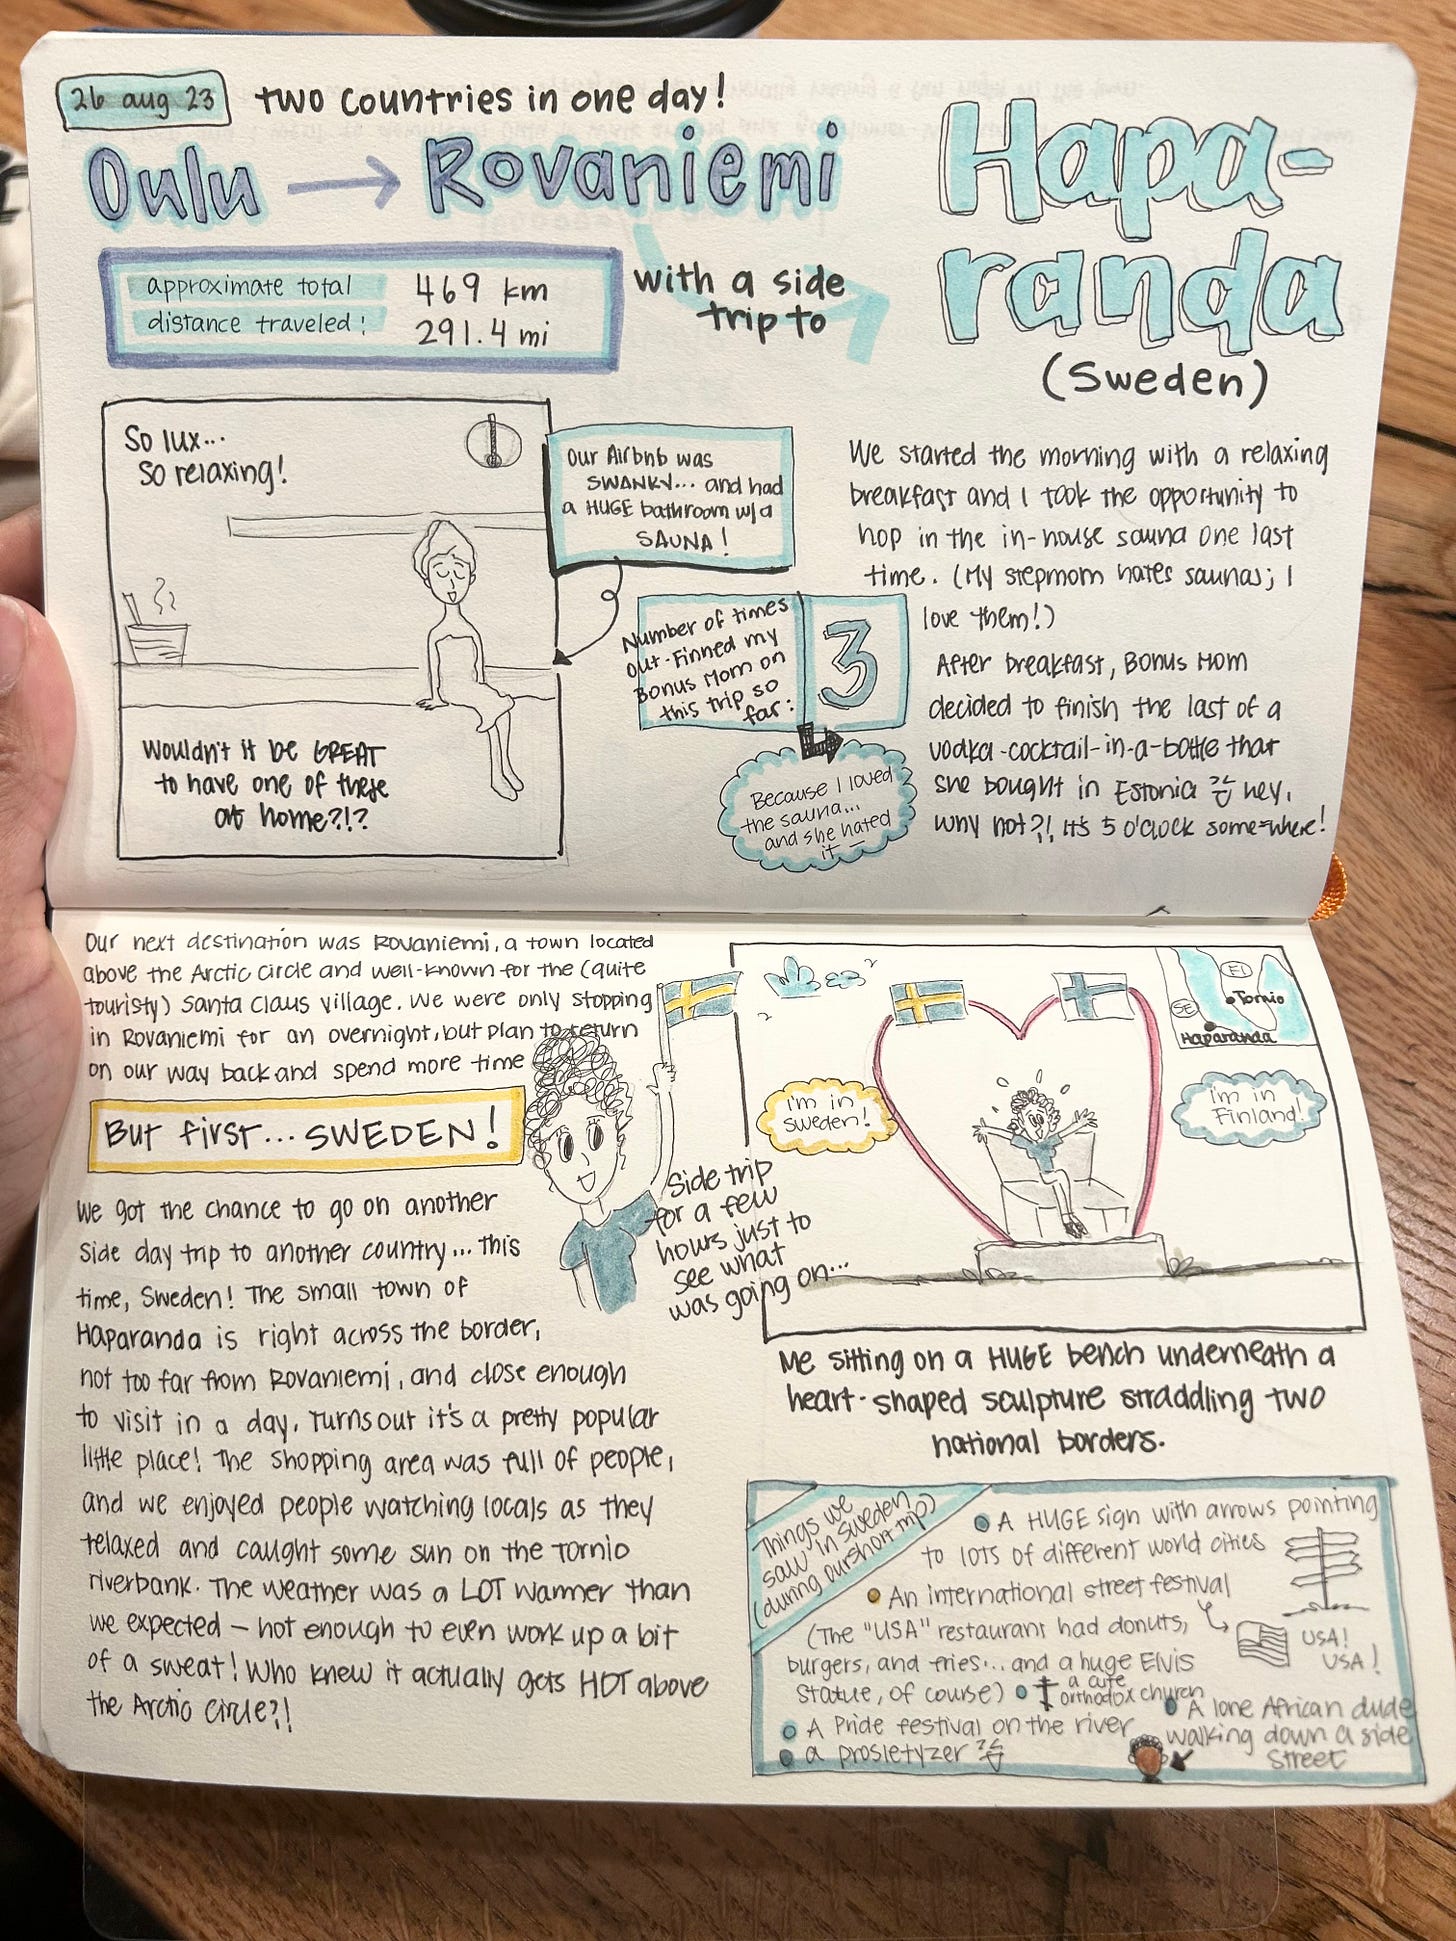 26 aug 23
two countries in one day!
Oulu → Rovaniemi
with a side
trip to
Hapa-
randa
(Sweden)
approximate total
distance traveled:
469 km
291.4 mi
So lux...
So relaxing!
Wouldn't it be GREAT
to have one of these
at home?!?
Our Airbnb was
SWANKY... and had
a HUGE bathroom w/a
SAUNA!
Number of times
out-Finned my
Bonus Mom on
this trip so
far:
3
Because I loved
the sauna...
and she hated
it
We started the morning with a relaxing
breakfast and I took the opportunity to
hop in the in-house sauna one last
time. (My stepmom hates saunas; I
love them!)
After breakfast, Bonus Mom
decided to finish the last of a
vodka-cocktail-in-a-bottle that
she bought in Estonia hey,
why not?! It's 5 o'clock somewhere!
Our next destination was Rovaniemi, a town located
above the Arctic Circle and well-known for the (quite
touristy) Santa Claus Village. We were only stopping
in Rovaniemi for an overnight, but plan to return
on our way back and spend more time
But first... SWEDEN!
We got the chance to go on another
side day trip to another country... this
time, Sweden! The small town of
Haparanda is right across the border,
not too far from Rovaniemi, and close enough
to visit in a day. Turns out it's a pretty popular
little place! The shopping area was full of people,
and we enjoyed people watching locals as they
relaxed and caught some sun on the Tornio
riverbank. The weather was a LOT warmer than
we expected – hot enough to even work up a bit
of a sweat! Who knew it actually gets HOT above
the Arctic Circle?!
Side trip
for a few
hours just to
see what
was going on...
FI
SE
Tornio
Haparanda
I'm in
Sweden!
I'm in
Finland!
Me sitting on a HUGE bench underneath a
heart-shaped sculpture straddling two
national borders.
Things we
saw in Sweden
(during our short trip)
• A HUGE sign with arrows pointing
to LOTS of different world cities
• An international street festival
(The "USA" restaurant had donuts,
burgers, and fries... and a huge Elvis
statue, of course)
USA!
USA!
• a cute
orthodox church
• A lone African dude
walking down a side
street
• A Pride festival on the river
• a prosletyzer